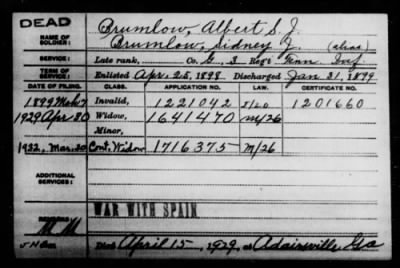 DEAD
NAME OF SOLDIER: Brumlow, Albert S. J.
Brumlow, Sidney J. (alias)
SERVICE: Late rank, Co. G, 3 Reg't Tenn Inf.
TERM OF SERVICE: Enlisted Apr. 25, 1898. Discharged Jan 31, 1899
DATE OF FILING. CLASS. APPLICATION NO. LAW. CERTIFICATE NO.
1899 Mch 7 Invalid, 1221042 1201660
1929 Apr 30 Widow, 1641470 M/26
Minor,
1932, Mar. 30 Cont. Widow 1716375 M/26
ADDITIONAL SERVICES:
WAR WITH SPAIN.
REMARKS:
Died April 15, 1929, at Adairsville Ga